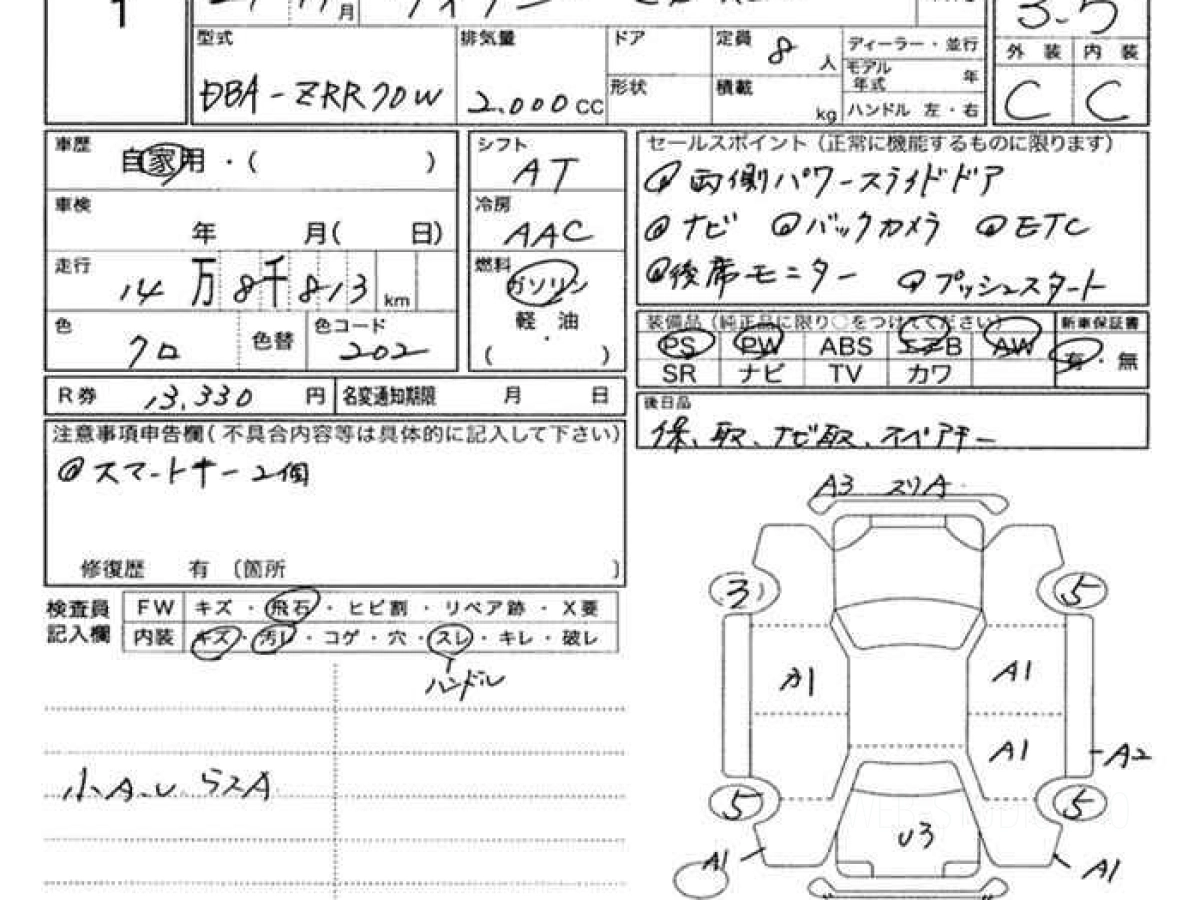 月
3.5
型式
DBA-ZRR70W
排気量
2.000 CC
ドア
形状
定員 8 人
積載 kg
ディーラー・並行
モデル年式 年
ハンドル 左・右
外装 内装
C C
車歴
自家用・( )
車検
年 月( 日)
走行
14万8千813 km
色
クロ
色替
色コード
202
シフト
AT
冷房
AAC
燃料
ガソリン
軽油
・
( )
セールスポイント(正常に機能するものに限ります)
◎両側パワースライドドア
◎ナビ ◎バックカメラ ◎ETC
◎後席モニター ◎プッシュスタート
装備品(純正品に限り○をつけてください)
PS PW ABS エアB AW
SR ナビ TV カワ
新車保証書
有・無
R券 13,330 円
名変通知期限 月 日
後日品
保、取、ナビ取、スペアキー
注意事項申告欄(不具合内容等は具体的に記入して下さい)
◎スマートキー2個
修復歴 有 〔箇所 〕
検査員記入欄
FW キズ・飛石・ヒビ割・リペア跡・X要
内装 キズ・汚レ・コゲ・穴・スレ・キレ・破レ
ハンドル
小A.U.
A3 スリA
3
5
A1
A1
A1
A2
5
5
U3
A1
A1